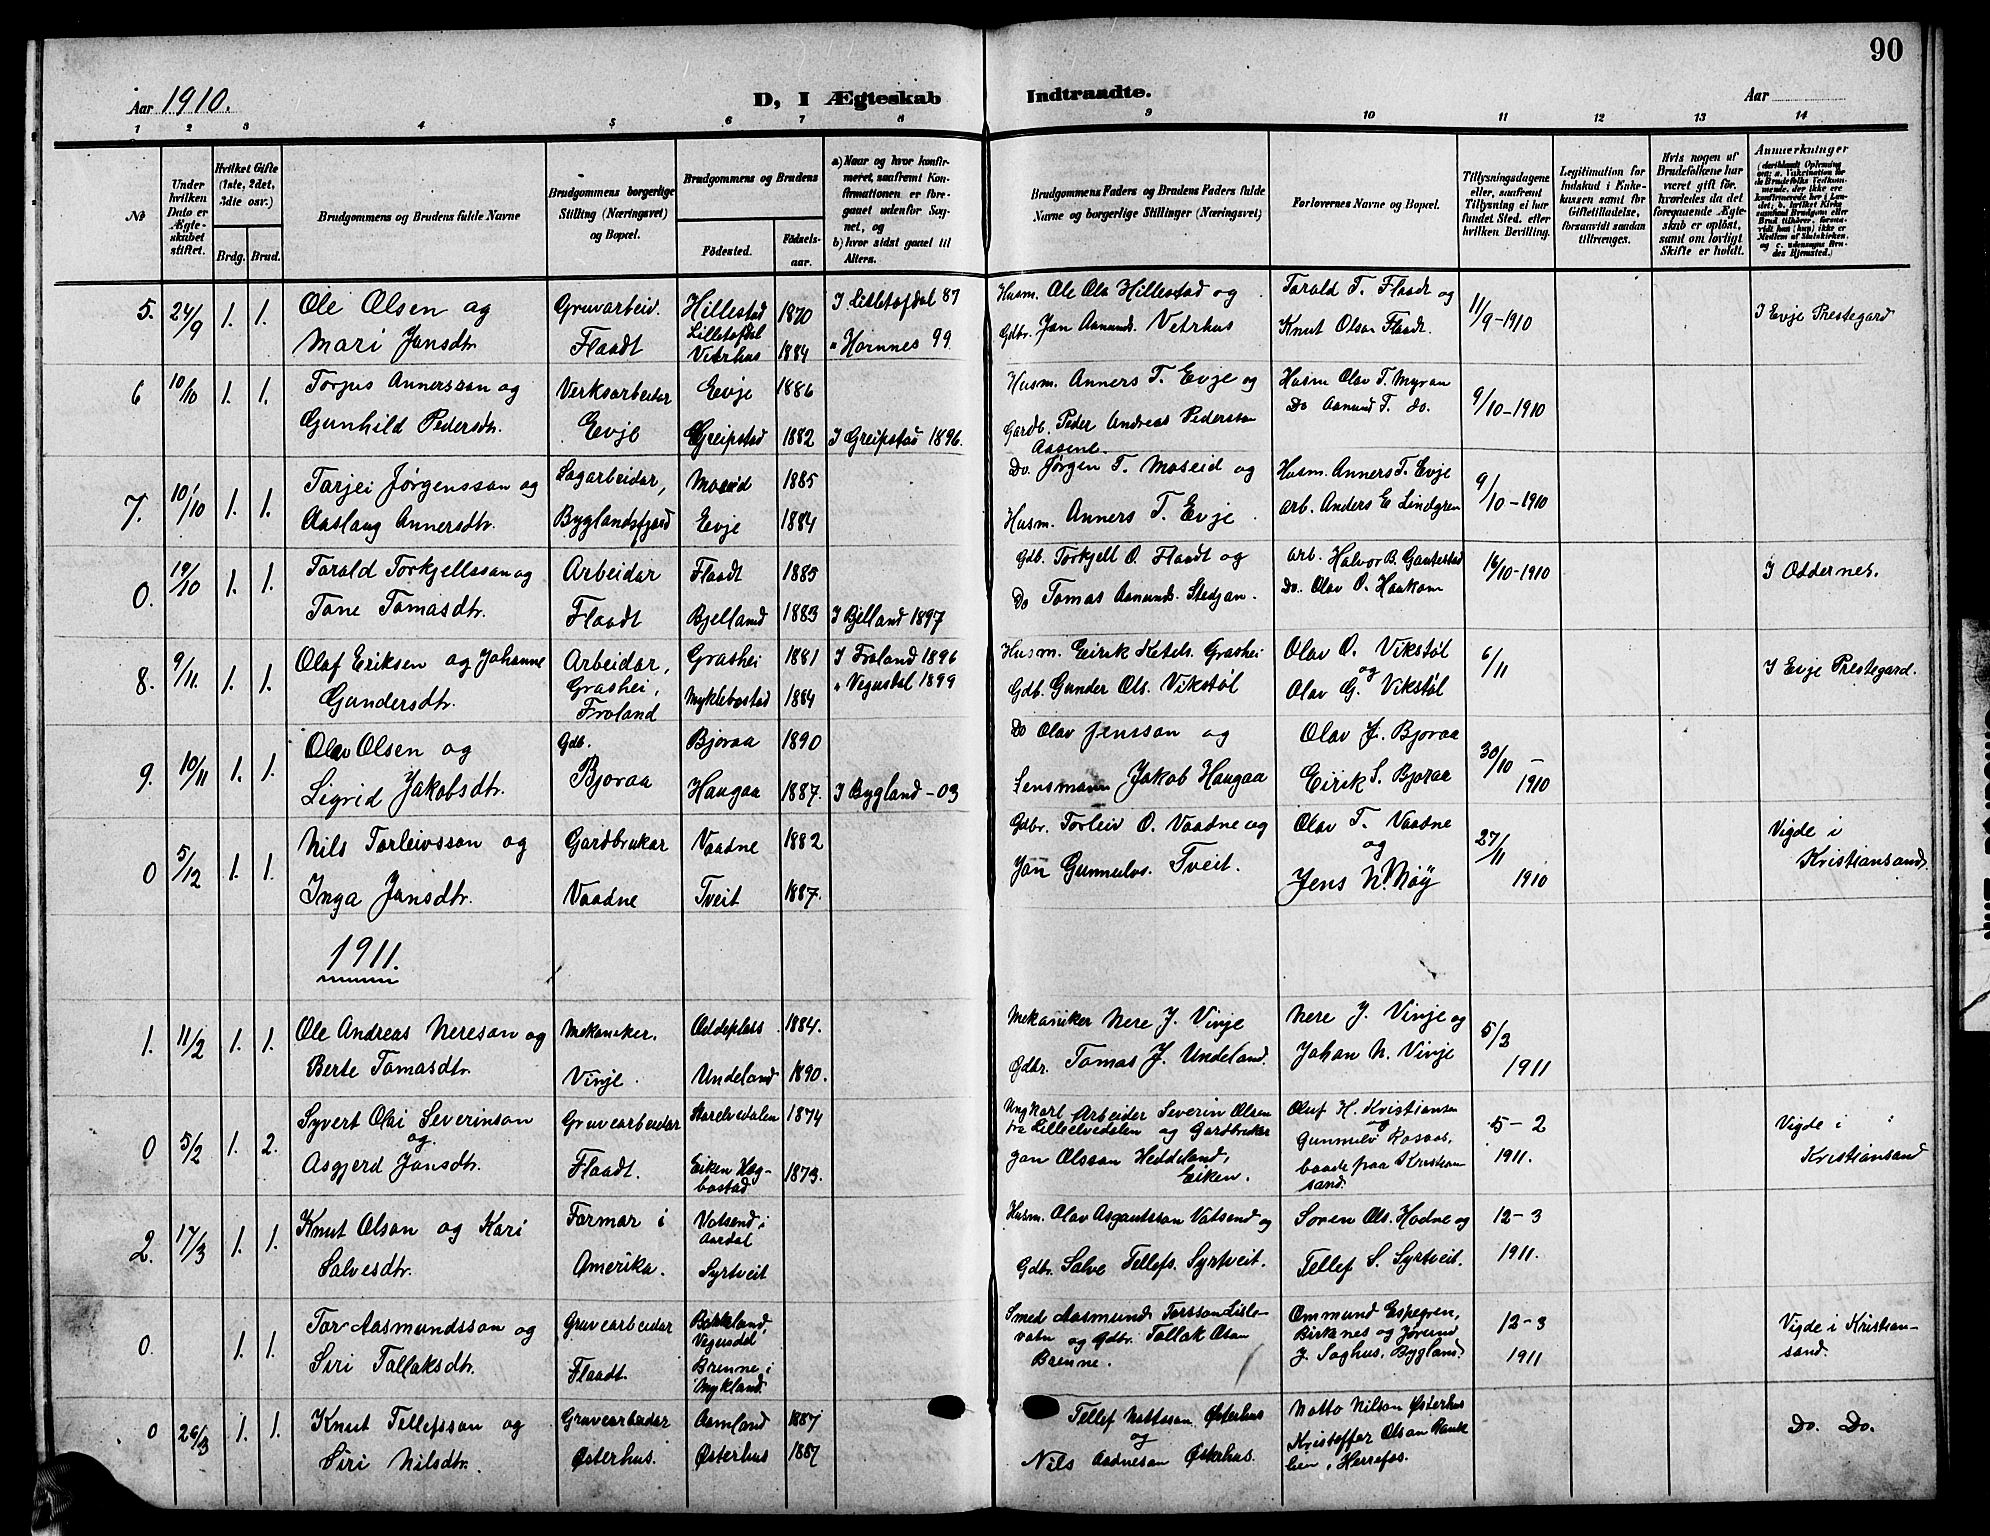 90
Aar 1910.
D, I Ægteskab
Indtraadte.
Aar
1 2 3 4 5 6 7 8 9 10 11 12 13 14
No
Under hvilken Dato er Ægteskabet stiftet.
Hvilket Gifte (1ste, 2det, 3die osv.)
Brdg. Brud.
Brudgommens og Brudens fulde Navne
Brudgommens borgerlige Stilling (Næringsvei) og Bopæl.
Brudgommens og Brudens
Födested. Födselsaar.
a) Naar og hvor konfirmeret, saafremt Konfirmationen er foregaaet udenfor Sognet, og
b) hvor sidst gaaet til Alters.
Brudgommens Faders og Brudens Faders fulde Navne og borgerlige Stillinger (Næringsvei)
Forlovernes Navne og Bopæl.
Tillysningsdagene eller, saafremt Tillysning ei har fundet Sted, efter hvilken Bevilling.
Legitimation for Indskud i Enkekassen samt for Giftetilladelse, forsaavidt saadan tiltrænges.
Hvis nogen af Brudefolkene har været gift før, hvorledes da det foregaaende Ægteskab er opløst, samt om lovligt Skifte er holdt.
Anmerkninger
5. 24/9 1. 1. Ole Olsen og Gruvarbeid. Hillestad 1870 I Lilletofdal 87 Husm. Ole Ols Hillestad og Torald T. Flaadt og 11/9-1910 I Evje Prestegard
Mari Jansdtr Flaadt Lilletofdal Vetrhus 1884 " Hornnes 99 Gdbr. Jan Aamunds. Vetrhus Knut Olsen Flaadt.
6 10/10 1. 1. Torjus Annersson og Verksarbeidar Evje 1886 Husm. Anners T. Evje og Husm Olav T. Myran 9/10-1910
Gunhild Pedersdtr. Evje Greipstad 1882 I Greipstad 1896. Gardb. Peder Andreas Pederson Aasene Do Aamund T. do.
7. 10/10 1. 1. Tarjei Jørgensson og Sagarbeidar, Moseid 1885 Do. Jørgen T. Moseid og Husm. Anners T. Evje 9/10-1910
Aaslaug Annersdtr. Byglandsfjord Evje 1884 Husm. Anners T. Evje Arb. Anders E Lindgren
0. 19/10 1. 1. Torald Torkjellsson og Arbeidar Flaadt 1885 Gdb. Torkjell O. Flaadt og Arb. Halvor B. Gautestad 16/10-1910 I Oddernes.
Tone Tomasdtr. Flaadt Bjelland 1883 I Bjelland 1897 Do Tomas Aamunds. Stedjan. Do. Olav O. Haakom
8. 9/11. 1. 1. Olaf Eriksen og Johanne Arbeidar, Grashei 1881 I Froland 1896 Husm. Eirik Ketels. Grashei Olav O. Vikstøl 6/11 I Evje Prestegard.
Gundersdtr. Grashei, Froland Myklebostad 1884 " Vegusdal 1899 Gdb. Gunder Ols. Vikstøl og Olav G. Vikstøl
9. 10/11 1. 1. Olav Olsen og Gdb. Bjoraa 1890 Do Olav Jensson og Olav J. Bjoraa 30/10 -
Sigrid Jakobsdtr. Bjoraa Haugaa 1887. I Bygland - 03 Lensmann Jakob Haugaa Eirik S. Bjoraa 1910
0 5/12 1. 1. Nils Torleivsson og Gardbrukar Vaadne 1882 Gdbr. Torleiv O. Vaadne og Olav T. Vaadne 27/11 Vigde i
Inga Jansdtr. Vaadne Tveit 1887. Jan Gunnulvs. Tveit. og Jens N. Møy 1910 Kristiansand.
1911.
1. 11/2 1. 1. Ole Andreas Neresøn og Mekaniker. Oddeplass 1884. Mekaniker Nere J. Vinje Nere J. Vinje og 5/2
Berte Tomasdtr. Vinje. Undeland 1890. Gdbr. Tomas J. Undeland. Johan N. Vinje 1911
0 5/2 1. 2. Syvert Olai Severinson Gruvearbeidar 1874 Ungkarl Arbeider Severin Olsen Oluf H. Kristiansen 5-2 Vigde i
og fra Lilleelvedalen og Gardbruker og Gunnulv Rosaas,
Asgjerd Jansdtr. Flaadt. Eiken Hægbostad 1873. Jan Olsson Heddeland, Eiken. baade fraa Kristiansand. 1911. Kristiansand
2. 17/3 1. 1. Knut Olson og Kari Farmar i Vatsend i Aardal Husm. Olav Asgautsson Vatsend og Soren Ols. Hodne og 12-3
Salvesdtr. Amerika. Syrtveit Gdbr. Salve Tellefs. Syrtveit. Tellef S. Syrtveit. 1911.
0. 1. 1. Tor Aasmundsson og Gruvearbeidar Birkeland, Vegusdal Smed Aasmund Torsson Lislevatn og Gdbr. Tallak Olson Ommund Espegren, Birknes og 12-3 Vigde i Kristiansand.
Siri Tallaksdtr. Flaadt. Brenne i Mykland Brenne. J. Saghus, Bygland. 1911
0 26/3 1. 1. Knut Tellefsson og Gruvearbeidar Aamland 1887 Tellef Nottsson Østerhus Notto Nilson Østerhus Do. Do.
Siri Nilsdtr. Østerhus. Østerhus 1887 og Nils Aadneson Østerhus. Kristoffer Olson, Herrefos.